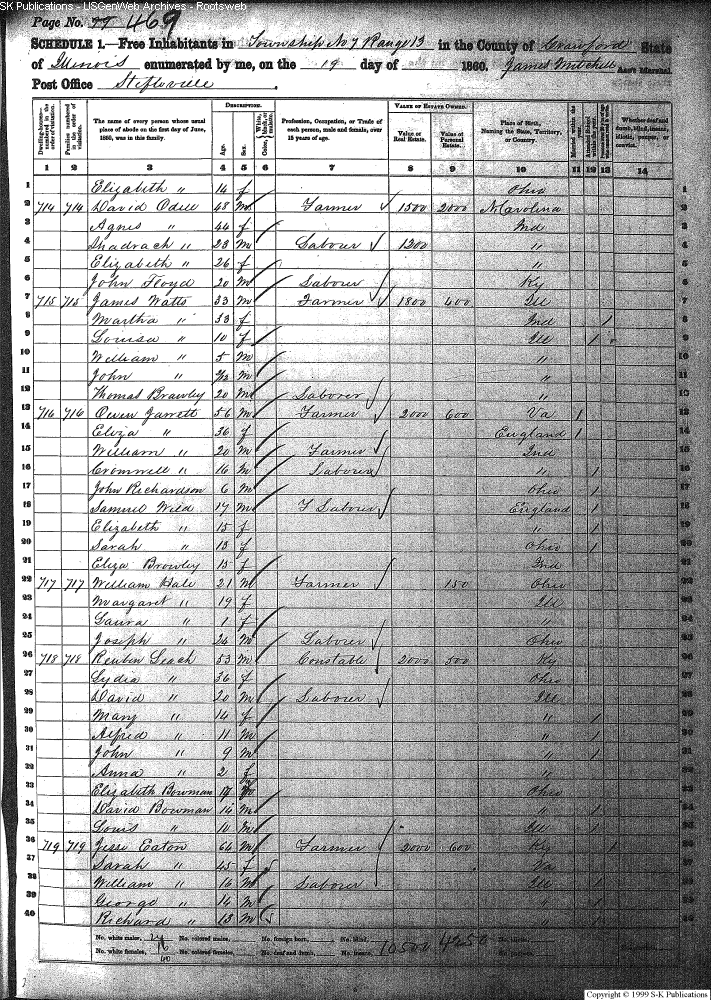 SK Publications - USGenWeb Archives - Rootsweb
Page No. 77 469
SCHEDULE 1.—Free Inhabitants in Township No 7 Range 13 in the County of Crawford State
of Illinois enumerated by me, on the 19 day of 1860. James Mitchell Ass't Marshal.
Post Office
Dwelling-houses— numbered in the order of visitation. Families numbered in the order of visitation. The name of every person whose usual place of abode on the first day of June, 1860, was in this family. DESCRIPTION. Age. Sex. Color, White, black, or mulatto. Profession, Occupation, or Trade of each person, male and female, over 15 years of age. VALUE OF ESTATE OWNED. Value of Real Estate. Value of Personal Estate. Place of Birth, Naming the State, Territory, or Country. Whether deaf and dumb, blind, insane, idiotic, pauper, or convict.
1 2 3 4 5 6 7 8 9 10 11 12 13 14
1 Elizabeth " 14 f Ohio 1
2 714 714 David Odell 48 M Farmer 1500 2000 N Carolina 2
3 Agnes " 44 f Ind 3
4 Shadrach " 23 M Laborer 1200 " 4
5 Elizabeth " 26 f " 5
6 John Floyd 20 M Laborer Ky 6
7 715 715 James Watts 33 M Farmer 1800 400 Ill 7
8 Martha " 33 f Ind 1 8
9 Louisa " 10 f Ill 1 9
10 William " 5 M " 10
11 John " M " 11
12 Thomas Brawley 20 M Laborer " 12
13 716 716 Owen Jarrett 56 M Farmer 2000 600 Va 1 13
14 Eliza " 36 f England 1 14
15 William " 20 M Farmer Ind 15
16 Cromwell " 16 M Laborer " 1 16
17 John Richardson 6 M Ohio 1 17
18 Samuel Weld 17 M F Laborer England 1 18
19 Elizabeth " 15 f " 1 19
20 Sarah " 13 f Ohio 1 20
21 Eliza Browley 15 f Ind 21
22 717 717 William Hale 21 M Farmer 150 Ohio 22
23 Margaret " 19 f Ill 23
24 Laura " 1 f " 24
25 Joseph " 24 M Laborer Ohio 25
26 718 718 Reuben Leach 53 M Constable 2000 500 Ky 26
27 Lydia " 36 f Ohio 27
28 David " 20 M Laborer Ill 28
29 Mary " 14 f " 1 29
30 Alfred " 11 M " 1 30
31 John " 9 M " 1 31
32 Anna " 2 f " 32
33 Elizabeth Bowman 17 Ohio 33
34 David Bowman 14 M " 1 34
35 Louis " 10 M Ill 1 35
36 719 719 Jesse Eaton 64 M Farmer 2000 600 Ky 1 36
37 Sarah " 45 f Va 37
38 William " 16 M Laborer Ill 1 38
39 George " 14 M " 1 39
40 Richard " 13 M " 1 40
No. white males, 24 No. colored males, No. foreign born, No. blind, 10500 4250 No. idiotic,
No. white females, 16 No. colored females, No. deaf and dumb, No. insane,
40
Copyright © 1999 S-K Publications